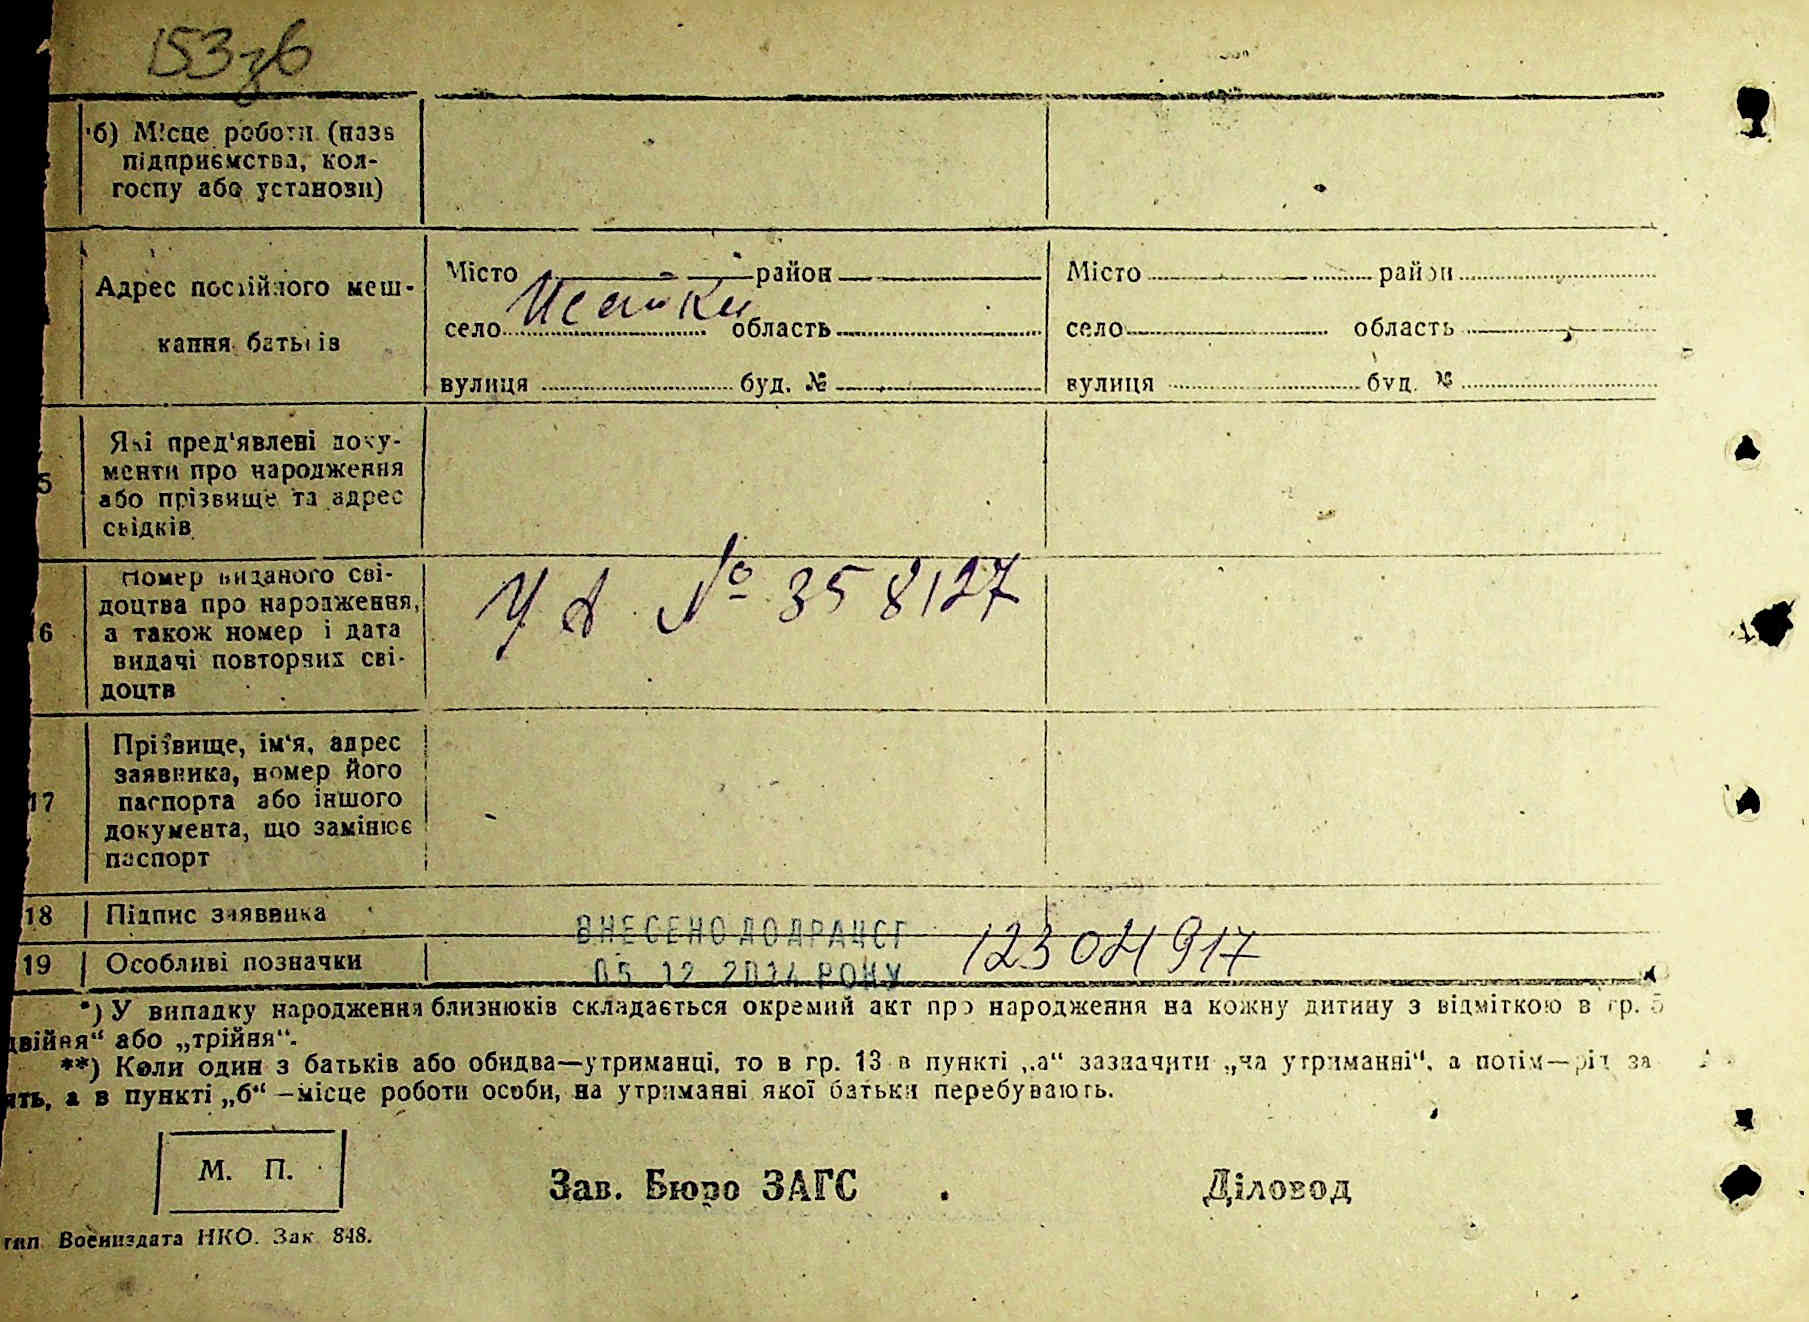 153зв
б) Місце роботи (назв
підприємства, кол-
госпу або установи)
Адрес постійного меш-
кання батьків
Місто район
село Исайки область
вулиця буд. №
Місто район
село область
вулиця буд. №
5 Які пред'явлені доку-
менти про народження
або прізвище та адрес
свідків
16 Номер виданого сві-
доцтва про народження,
а також номер і дата
видачі повторних сві-
доцтв
УА № 358127
17 Прізвище, ім'я, адрес
заявника, номер його
паспорта або іншого
документа, що замінює
паспорт
18 Підпис заявника
ВНЕСЕНО ДО ДРАЦСГ
19 Особливі позначки
05 12 2014 РОКУ
123 04 917
*) У випадку народження близнюків складається окремий акт про народження на кожну дитину з відміткою в гр. 5
двійня“ або „трійня“.
**) Коли один з батьків або обидва—утриманці, то в гр. 13 в пункті „а“ зазначити „на утриманні“, а потім—рід за
ять, а в пункті „б“ —місце роботи особи, на утриманні якої батьки перебувають.
М. П.
Зав. Бюро ЗАГС
Діловод
тип. Воениздата НКО. Зак. 848.